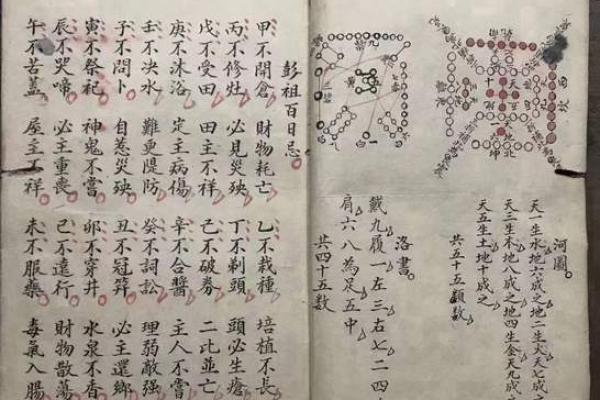 河圖
天一生水地六成之地二生火天七成之
天三生木地八成之地四生金天九成
天五生土地十成之
共五十五顆數
洛書
戴九履一左三右七二四
肩六八為足五中
共四十五數
彭祖百日忌
甲不開倉 財物耗亡 乙不栽種 培植不長
丙不修灶 必見災殃 丁不剃頭 頭必生瘡
戊不受田 田主不祥 己不破券 二比並亡
庚不沐浴 定主病傷 辛不合醬 主人不嘗
壬不決水 難更隄防 癸不詞訟 理弱敵强
子不問卜 自惹災殃 丑不冠笄 必主還鄉
寅不祭祀 神鬼不嘗 卯不穿井 水泉不香
辰不哭啼 必主重喪 巳不遠行 財物散蕩
午不苦蓋 屋主不祥 未不服藥 毒氣入腸